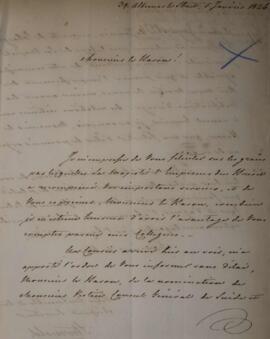 Monsieur le Baron!
Je m'empresse de Vous féliciter sur les grâces
par lesquelles Sa Majesté l'Empereur des Russies
a récompensé Vos importants services, et de
Vous exprimer Monsieur le Baron, combien
je m'estime heureux d'avoir l'avantage de Vous
compter parmi mes Collègues.
Un Courier arrivé hier au soir, m'a
apporté l'ordre de Vous informer sans délai,
Monsieur le Baron, de la nomination de
Monsieur Consul Général de Suède et